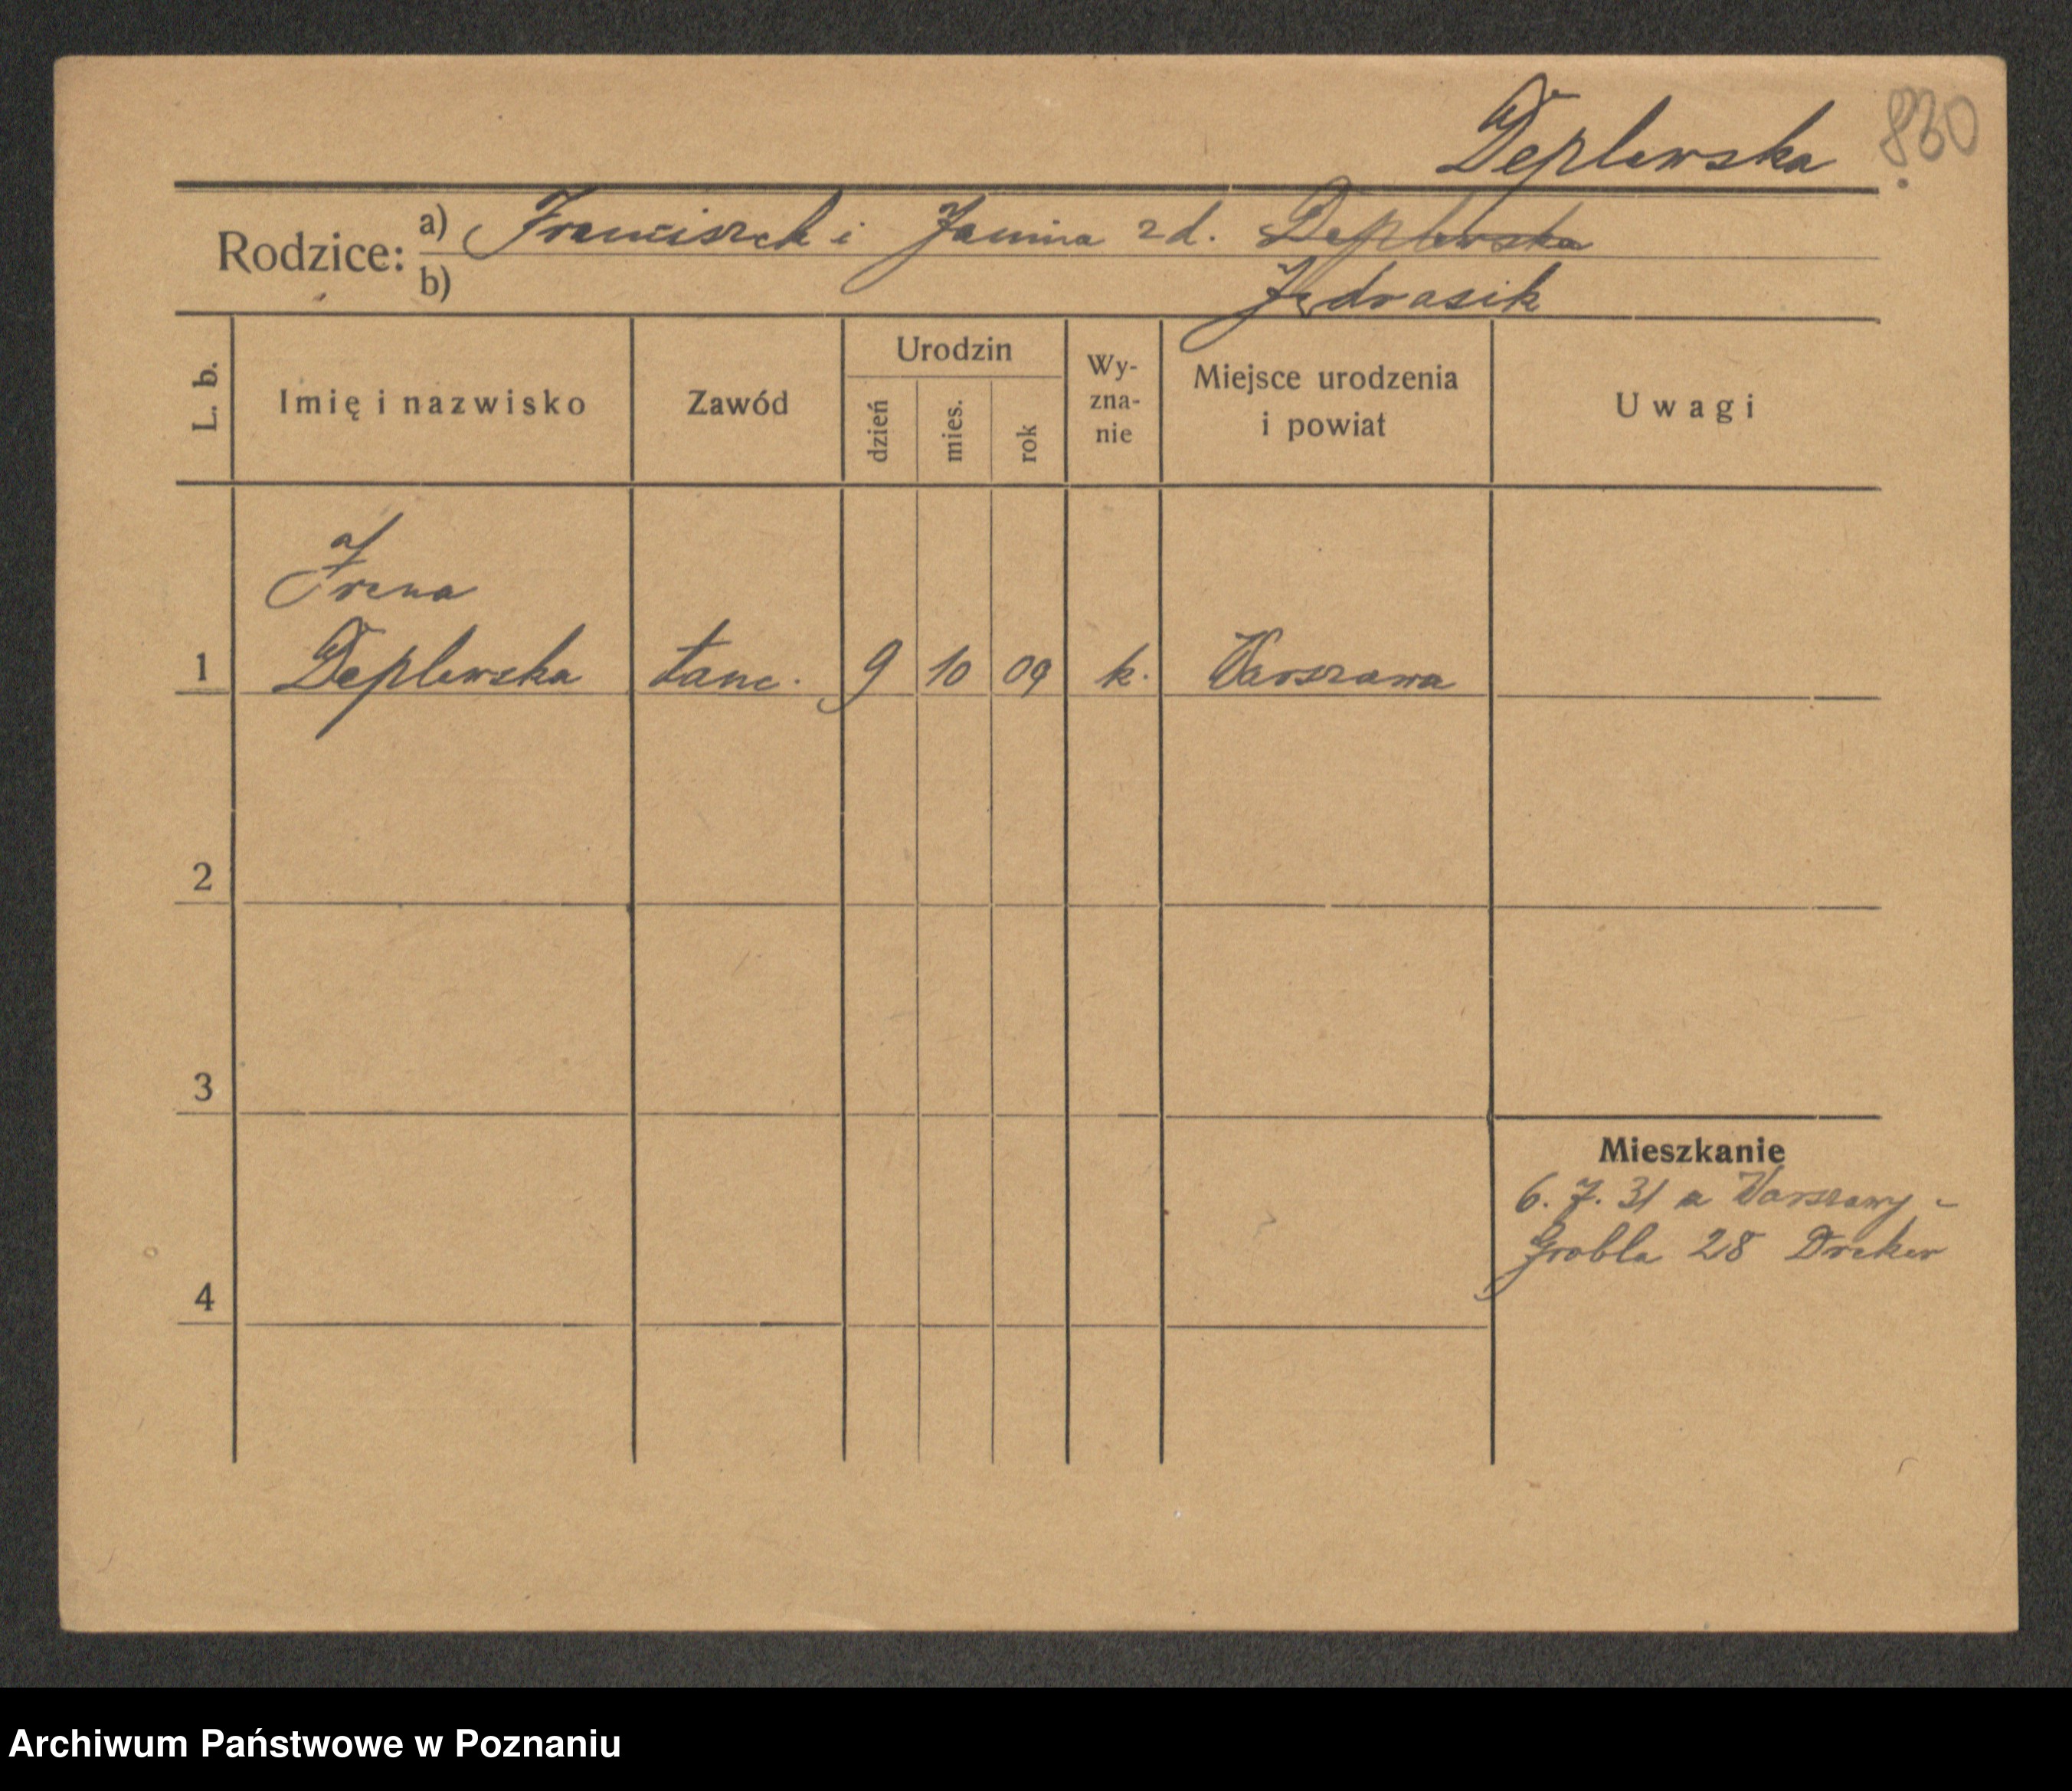 Deplewska 830
Rodzice: a) Franciszek i Janina z d. Deplewska
b) Jędrasik
L. b. Imię i nazwisko Zawód Urodzin dzień mies. rok Wy-zna-nie Miejsce urodzenia i powiat Uwagi
Irena
1 Deplewska tanc. 9 10 09 k. Warszawa
2
3
Mieszkanie
6. 7. 31 z Warszawy -
Grobla 28 Dreker
4
Archiwum Państwowe w Poznaniu